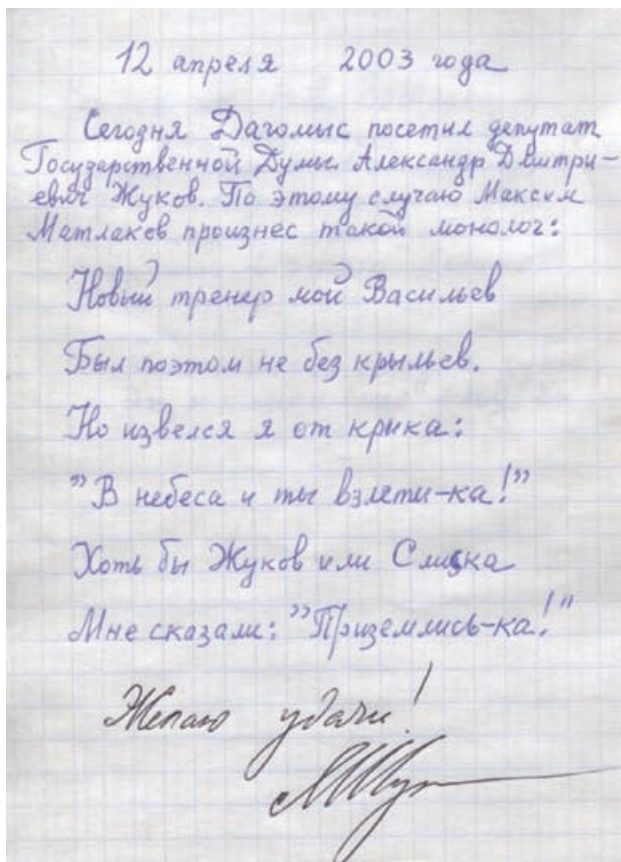 12 апреля 2003 года
Сегодня Дагомыс посетил депутат
Государственной Думы Александр Дмитри-
евич Жуков. По этому случаю Максим
Матлаков произнес такой монолог:
Новый тренер мой Васильев
Был поэтом не без крыльев.
Но извелся я от крика:
"В небеса и ты взлети-ка!"
Хоть бы Жуков или Слиска
Мне сказали: "Приземлись-ка!"
Желаю удачи!